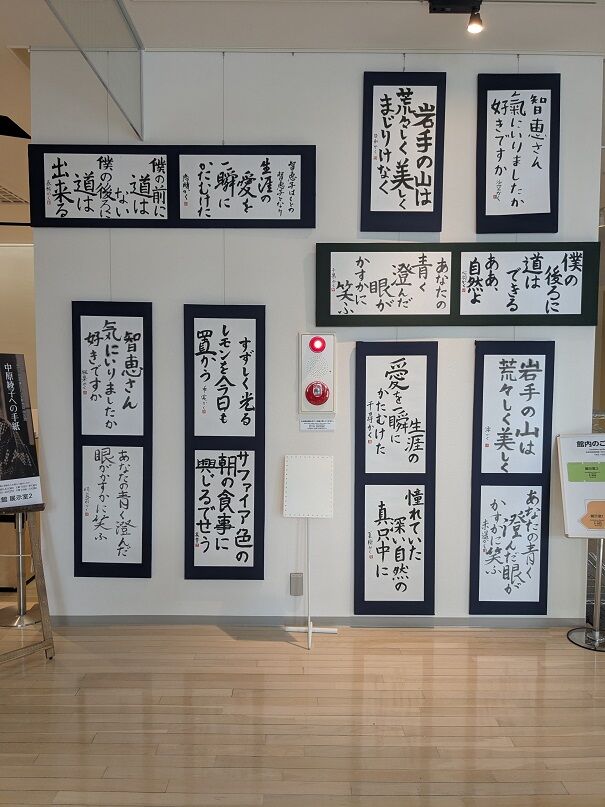 僕の前に
道は
ない
僕の後ろに
道は
出来る
智恵子はもとの
智恵子となり
生涯の
愛を
一瞬に
かたむけた
岩手の山は
荒々しく美しく
まじりけなく
智恵さん
氣にいりましたか
好きですか
僕の
後ろに
道は
できる
ああ、
自然よ
あなたの
青く
澄んだ
眼が
かすかに
笑ふ
智恵さん
気にいりましたか
好きですか
あなたの青く澄んだ
眼がかすかに笑ふ
すずしく光る
レモンを今日も
買かつ
サファイア色の
朝の食事に
興じるでせう
生涯の
愛を一瞬に
かたむけた
憧れていた
深い自然の
真只中に
岩手の山は
荒々しく美しく
あなたの青く
澄んだ眼が
かすかに笑ふ
中原綾子への手紙
館 展示室2
館内のご